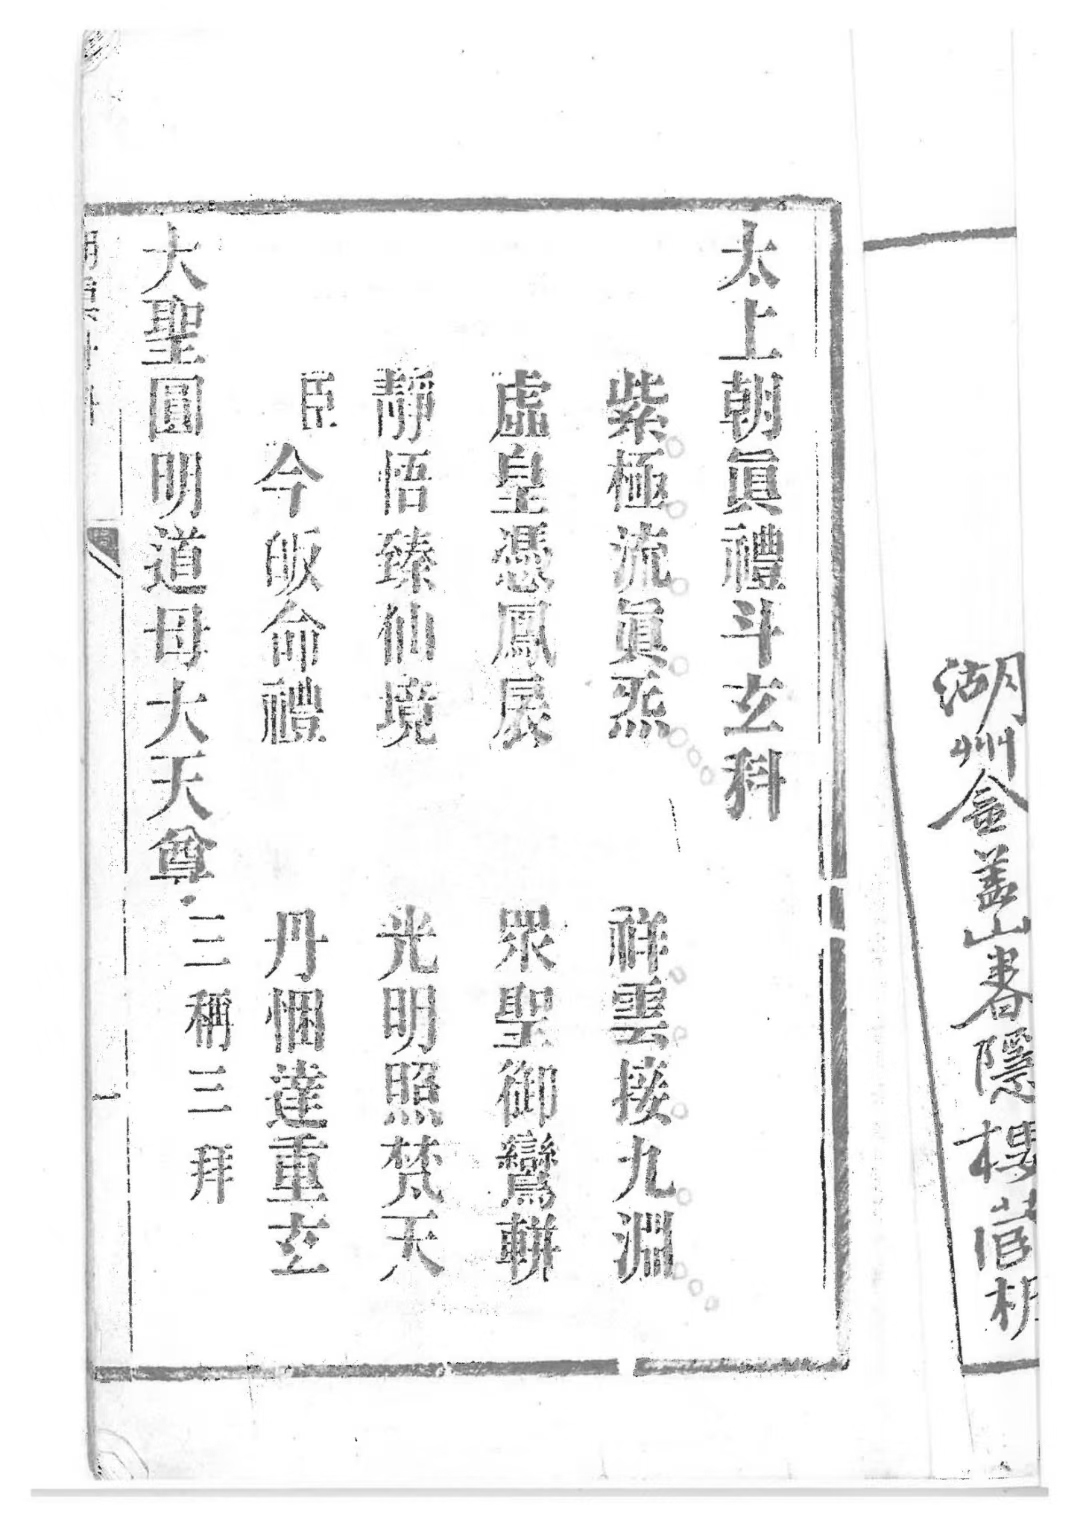 湖州金盖山書隱樓藏板
太上朝眞禮斗玄科
紫極流眞炁 祥雲接九淵
虛皇憑鳳扆 眾聖御鸞軿
靜悟臻仙境 光明照梵天
臣今皈命禮 丹悃達重玄
大聖圓明道母大天尊 三稱三拜
一